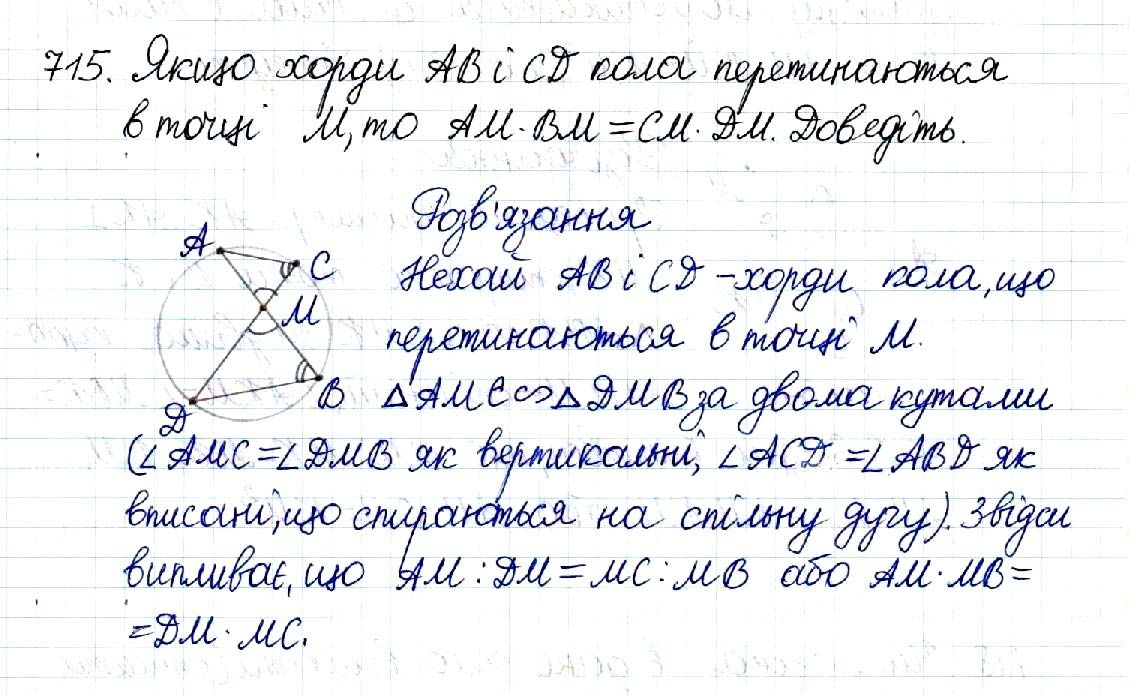 715. Якщо хорди AB і CD кола перетинаються
в точці M, то AM·BM=CM·DM. Доведіть.
Розв'язання
A
C
Нехай AB і CD - хорди кола, що
M
перетинаються в точці M.
B
D
△AMC∽△DMB за двома кутами
(∠AMC=∠DMB як вертикальні, ∠ACD=∠ABD як
вписані, що спираються на спільну дугу). Звідси
випливає, що AM:DM=MC:MB або AM·MB=
=DM·MC.